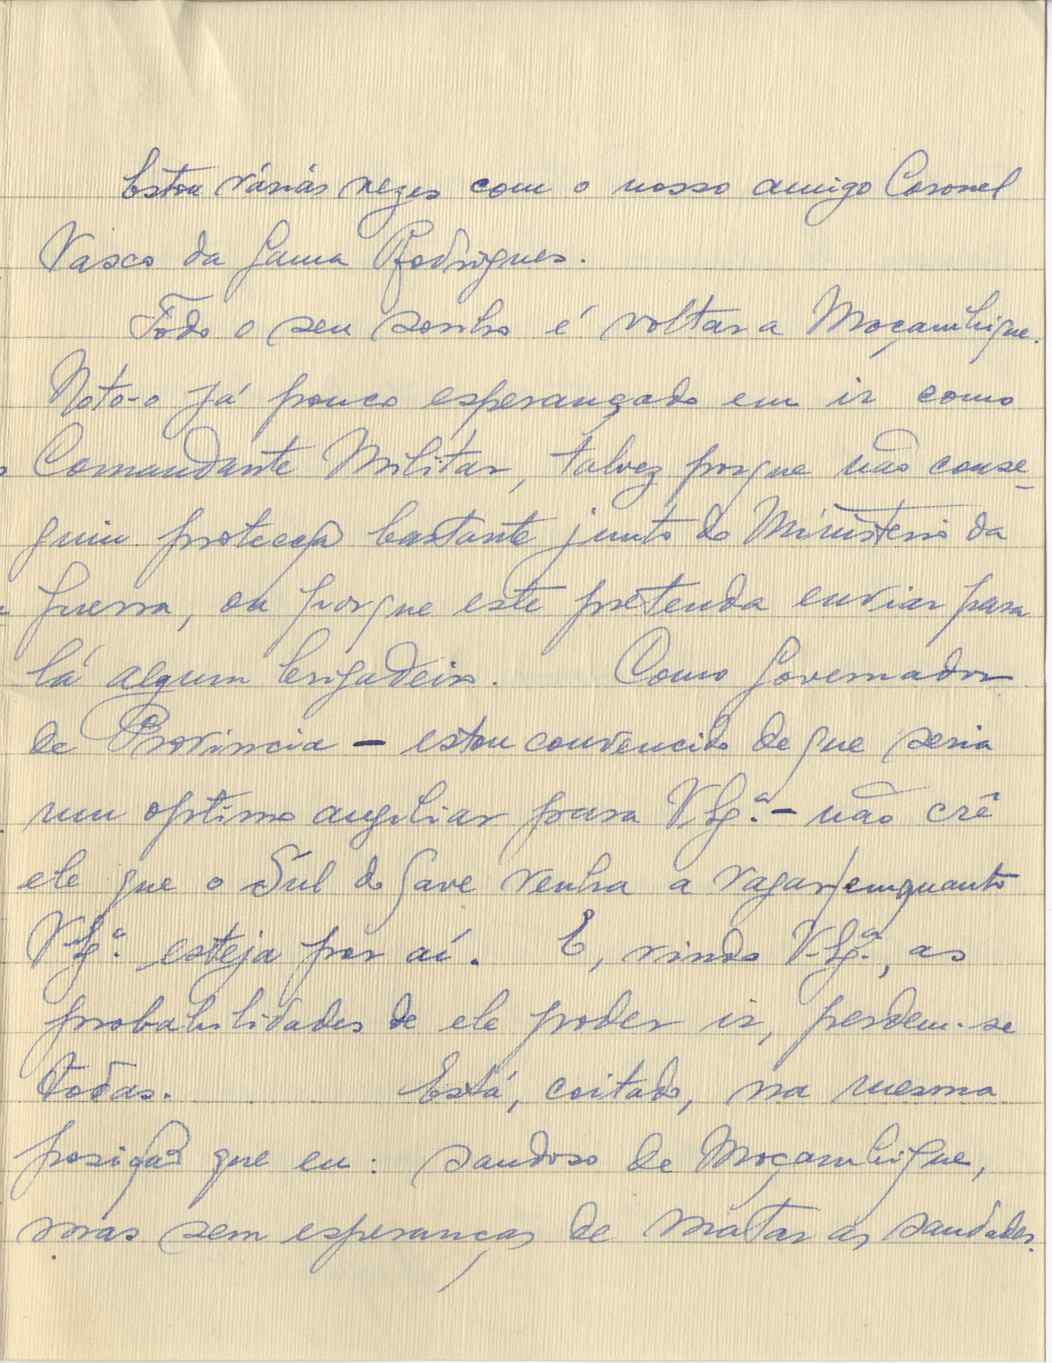 Estou várias vezes com o nosso amigo Coronel
Vasco da Gama Rodrigues.
Todo o seu sonho é voltar a Moçambique.
Noto-o já pouco esperançado em ir como
Comandante Militar, talvez porque não conse-
guiu protecção bastante junto do Ministério da
Guerra, ou porque este pretenda enviar para
lá algum brigadeiro. Como Governador
de Província — estou convencido de que seria
um optimo auxiliar para V. Ex.ª — não crê
ele que o Sul do Save venha a vagar, enquanto
V. Ex.ª esteja por aí. E, vindo V. Ex.ª, as
probabilidades de ele poder ir, perdem-se
todas. Está, coitado, na mesma
posição que eu: saudoso de Moçambique,
mas sem esperanças de matar as saudades.